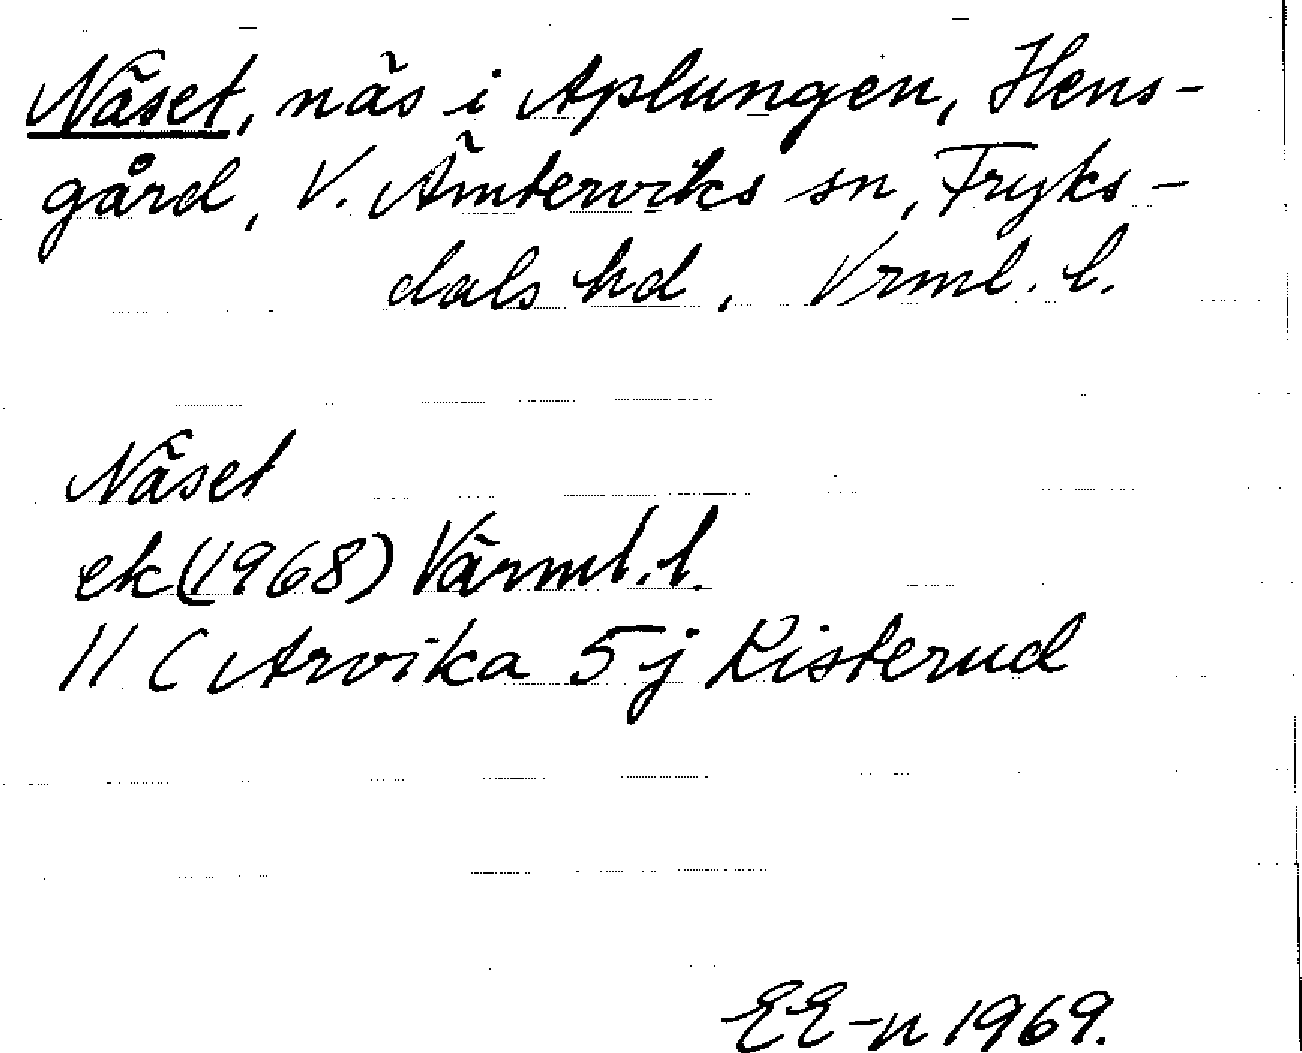 Näset, näs i Aplungen, Hens-
gård, V. Ämterviks sn, Fryks-
dals hd, Vrml. l.
Näset
ek (1968) Värml. l.
11 C Arvika 5 j Risterud
EE-n 1969.